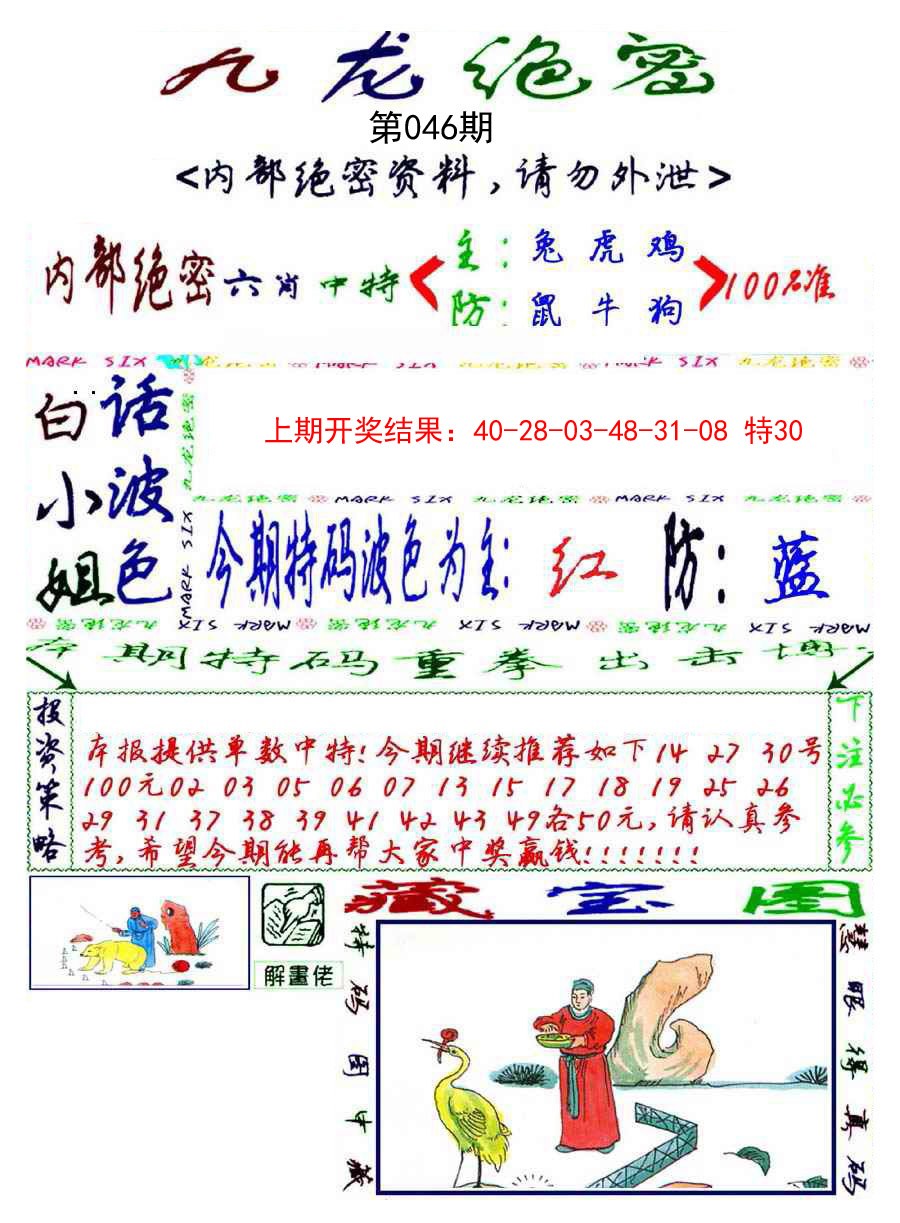 九龙绝密
第046期
<内部绝密资料,请勿外泄>
内部绝密六肖中特
主:兔虎鸡
防:鼠牛狗
100%准
MARK SIX 九龙绝密 MARK SIX 九龙绝密 MARK SIX 九龙绝密
白话
小波
姐色
九龙绝密
MARK SIX
上期开奖结果：40-28-03-48-31-08 特30
九龙绝密 MARK SIX 九龙绝密 MARK SIX 九龙绝密
今期特码波色为主:红 防:蓝
九龙绝密 MARK SIX MARK 九龙绝密 九龙绝密 SIX MARK 九龙绝密 SIX MARK
本期特码重拳出击博
投资策略
本报提供单数中特!今期继续推荐如下14 27 30号
100元02 03 05 06 07 13 15 17 18 19 25 26
29 31 37 38 39 41 42 43 49各50元,请认真参
考,希望今期能再帮大家中奖赢钱!!!!!!!
下注必参
解畫佬
藏宝图
特码图中藏
慧眼得真码